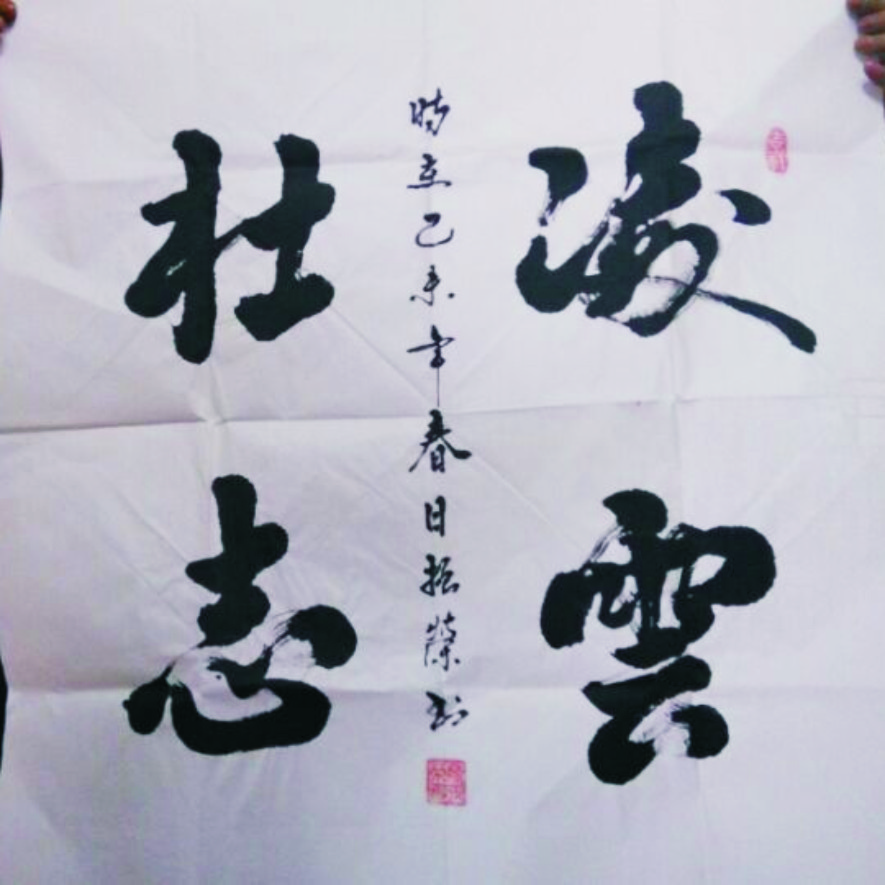 凌雲
壯志
時在乙未年春日振榮书